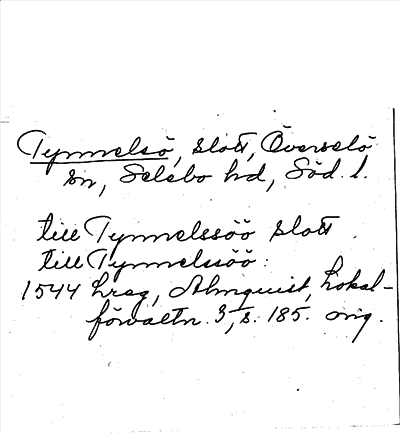 Tynnelsö, slott, Överselö
sn, Selebo hd, Söd. l.
till Tynnelssöö slott
till Tynnelssöö:
1544 hreg, Almquist, Lokal-
förvaltn. 3, s. 185. orig.